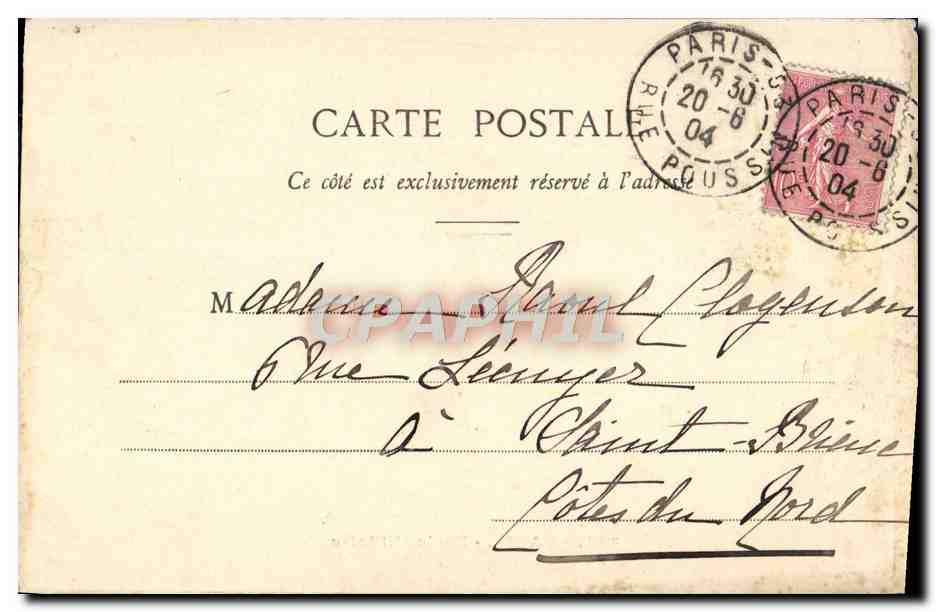 PARIS-53
16 30
20 -6
04
RUE POUSSIN
PARIS-53
16 30
20 -6
04
RUE POUSSIN
CARTE POSTALE
Ce côté est exclusivement réservé à l'adresse
Madame Raoul Clogenson
6 rue Lécuyer
à Saint-Brieuc
Côtes du Nord
CPAPHIL